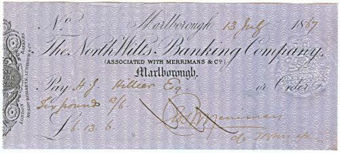 No. Marlborough, 13 July 1867
The North Wilts. Banking Company,
(ASSOCIATED WITH MERRIMANS & Co.)
Marlborough.
Pay H. J. Hillier Esq or Order
Six pounds
£6.13.6